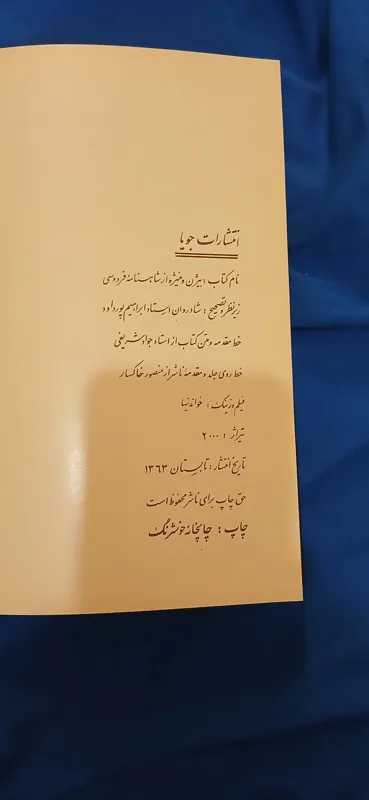 انتشارات جویا
نام کتاب : بیژن و منیژه از شاهنامهٔ فردوسی
زیر نظر و تصحیح : شادروان استاد ابراهیم پورداود
خط مقدمه و متن کتاب از استاد جواد شریفی
خط روی جلد و مقدمه ناشر از منصور خاکسار
فیلم و زینک : خواندنیها
تیراژ : ۲۰۰۰
تاریخ انتشار : تابستان ۱۳۶۳
حق چاپ برای ناشر محفوظ است
چاپ : چاپخانه خوشرنگ